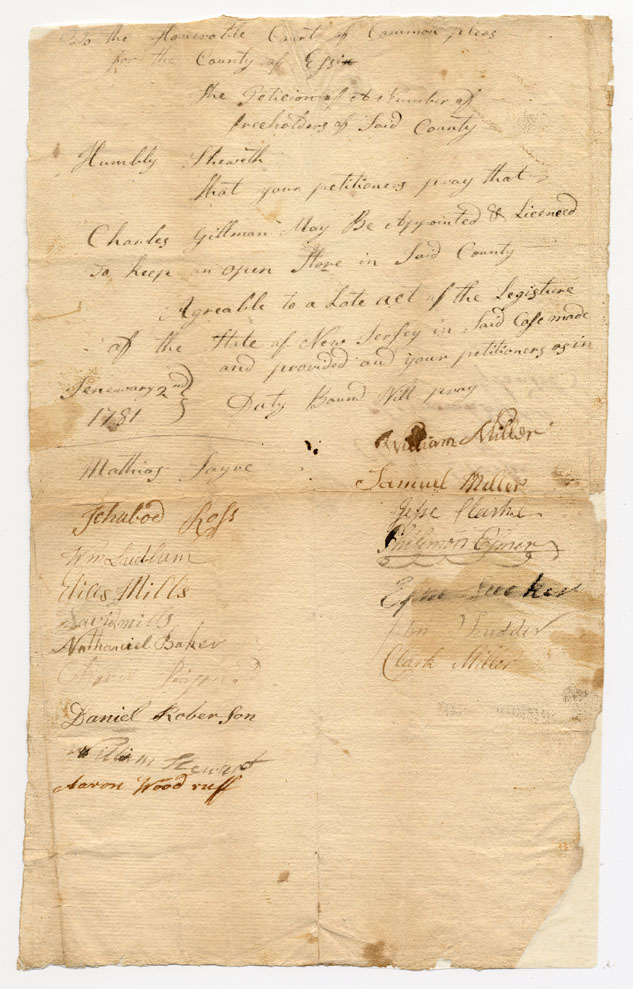 To the Honorable Court of Common pleas
for the County of Essix
the Peticion of A Number of
freeholders of Said County
Humbly Sheweth
that your petitioners pray that
Charles Gillman May Be Appointed & Licenced
to keep an open Store in Said County
Agreable to a Late act of the Legisture
of the Stte of New Jersey in Said Case made
and provided and your petitioners as in
Duty Bound Will pray
Jenewary 2nd
1781
William Miller
Mathias Sayre
Samuel Miller
Ichabod Ross
Jesse Clarke
Philemon
Wm Ludlum
Elias Mills
David mills
Nathaniel Baker
Clark Miller
Daniel Roberson
William Stewart
Aaron Woodruff